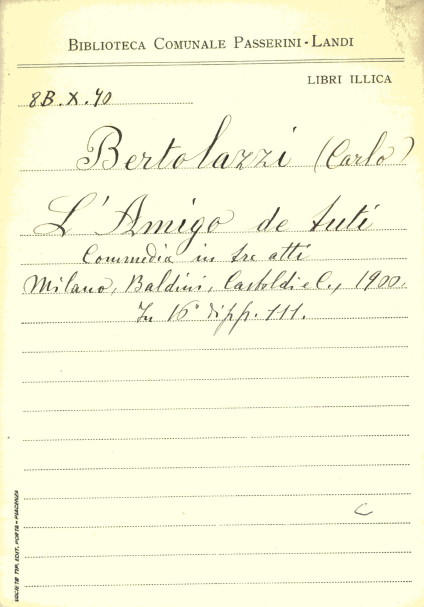 BIBLIOTECA COMUNALE PASSERINI-LANDI
LIBRI ILLICA
8B.X.40
Bertolazzi (Carlo)
L'Amigo de tuti
Commedia in tre atti
Milano, Baldini, Castoldi e C., 1900.
In 16° di pp. 111.
C
SOCIETÀ TIP. EDIT. PORTA - PIACENZA